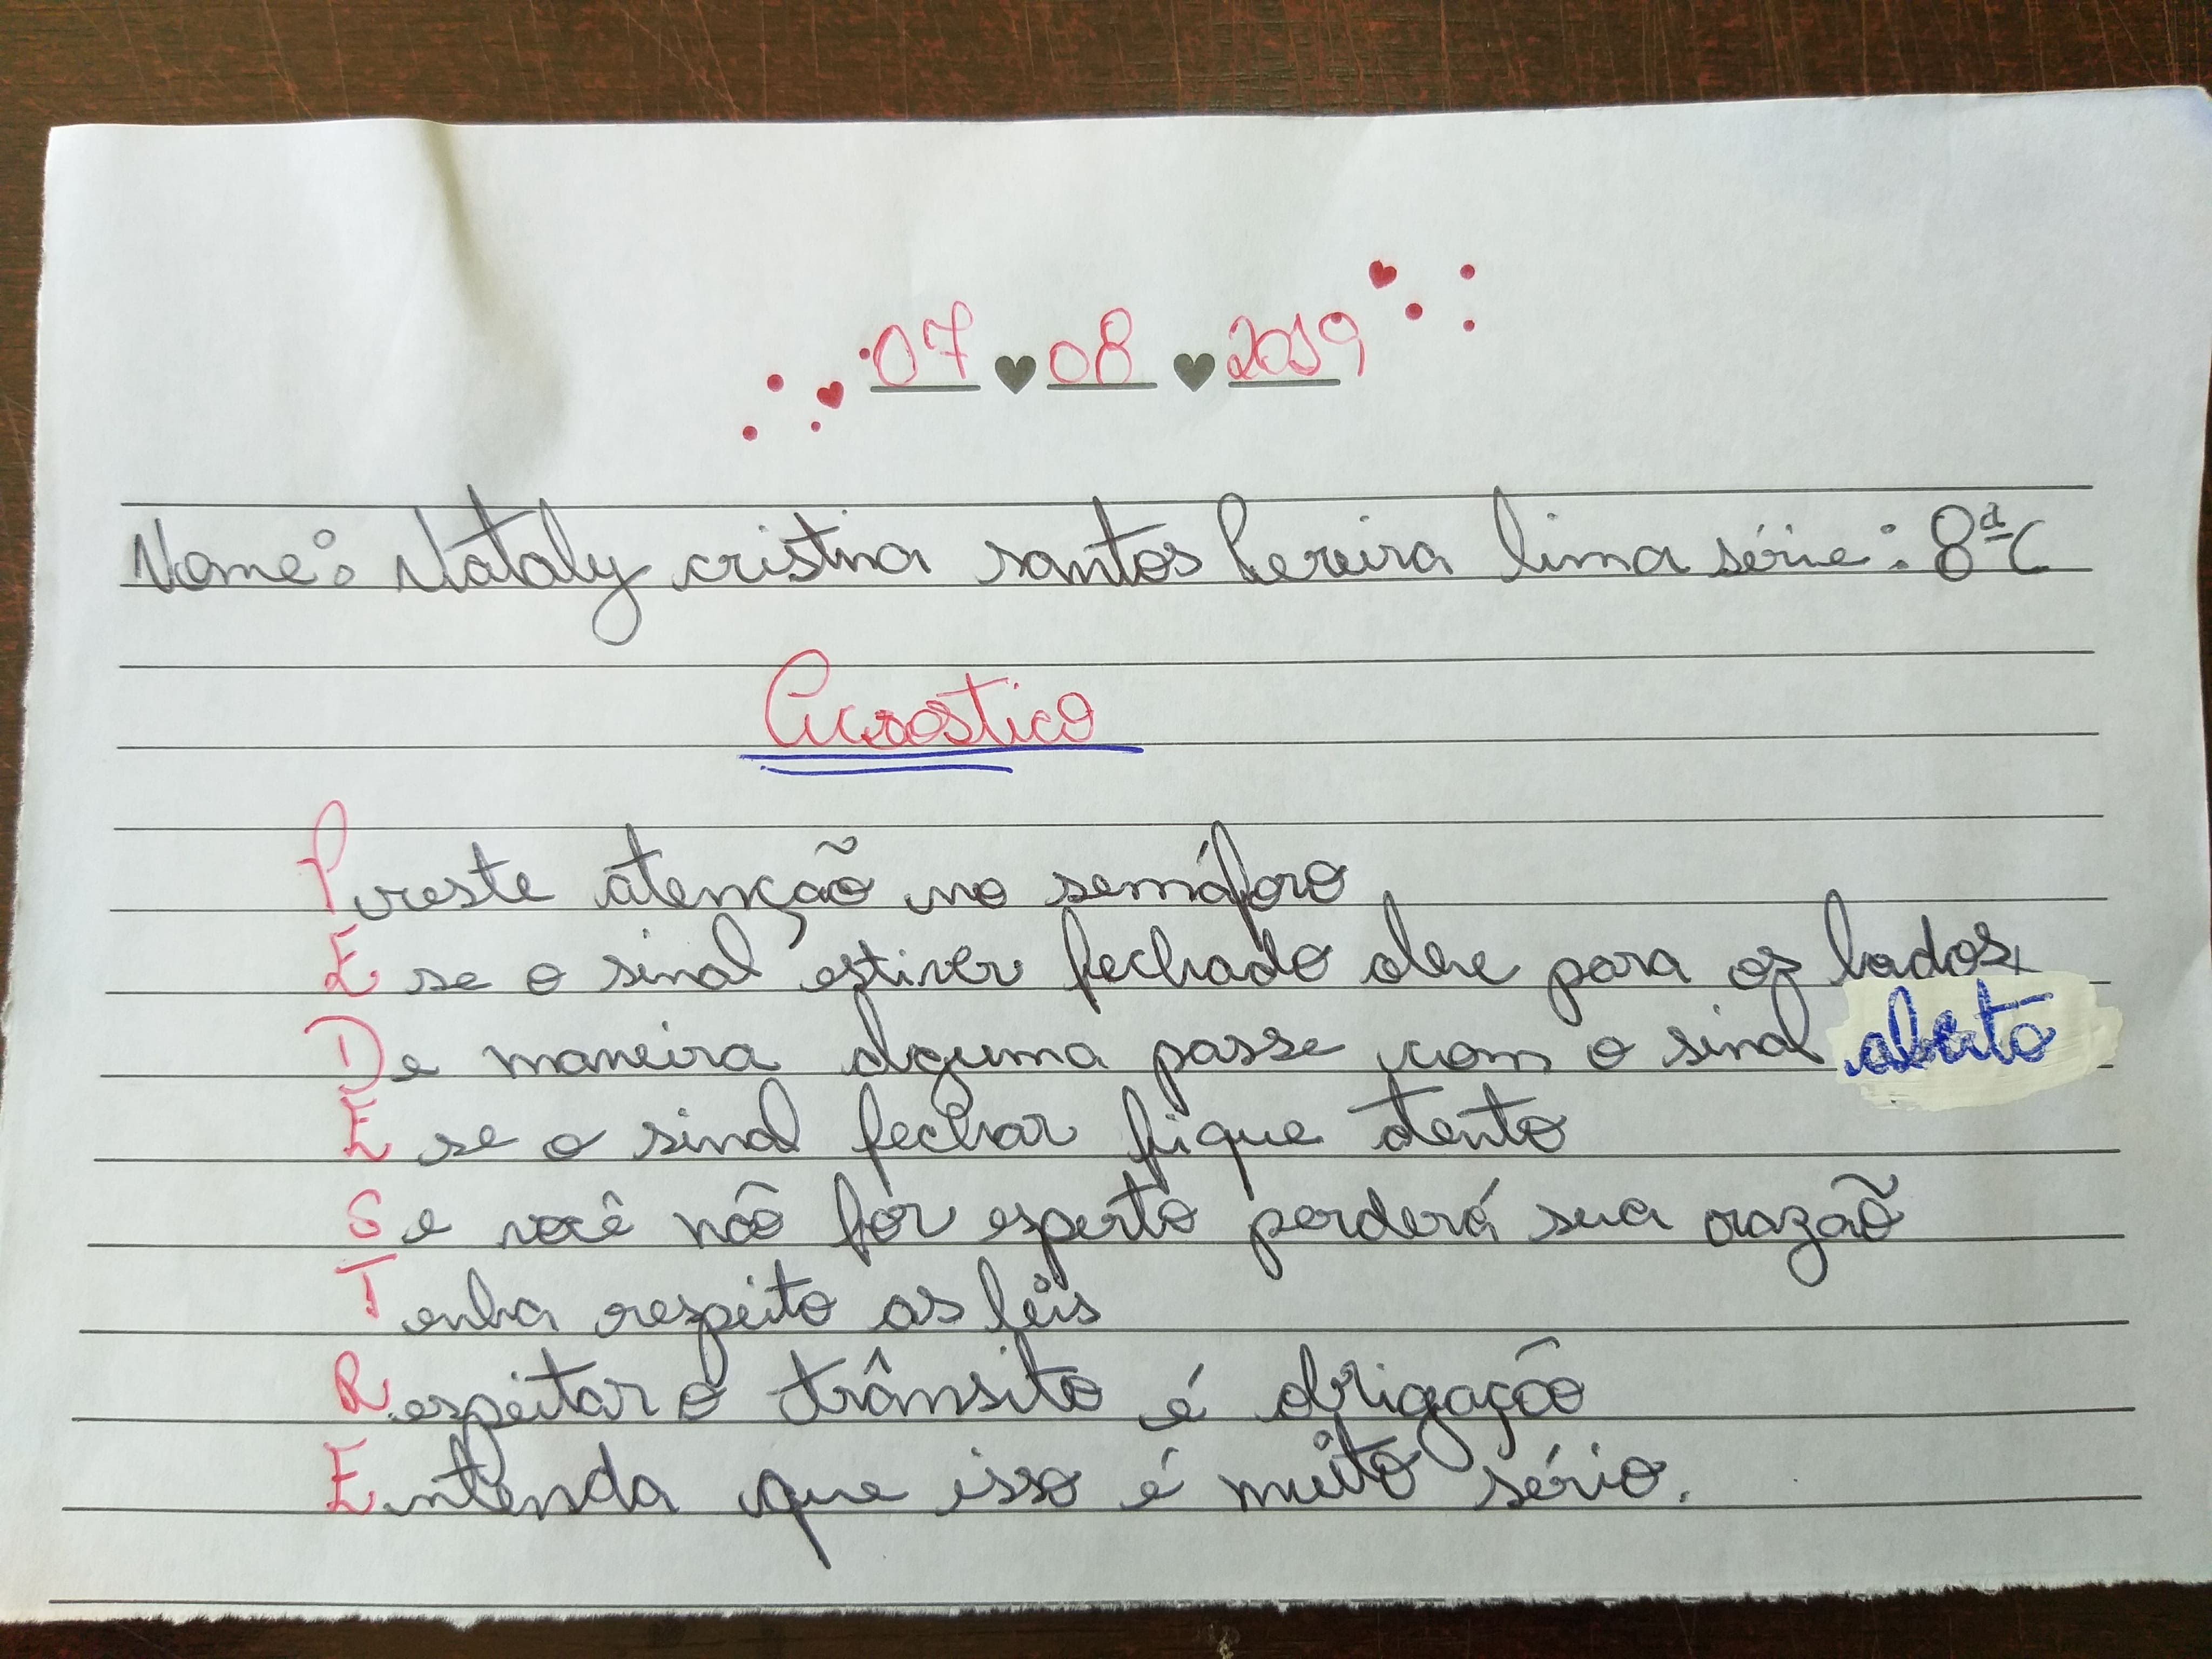 07 08 2019
Nome: Nataly cristina santos Pereira lima série: 8ª C
Acrostico
Preste atenção no semáforo
E se o sinal estiver fechado olhe para os lados
De maneira alguma passe com o sinal aberto
E se o sinal fechar fique atento
Se você não for esperto perderá sua razão
Tenha respeito as leis
Respeitar o trânsito é obrigação
Entenda que isso é muito sério.